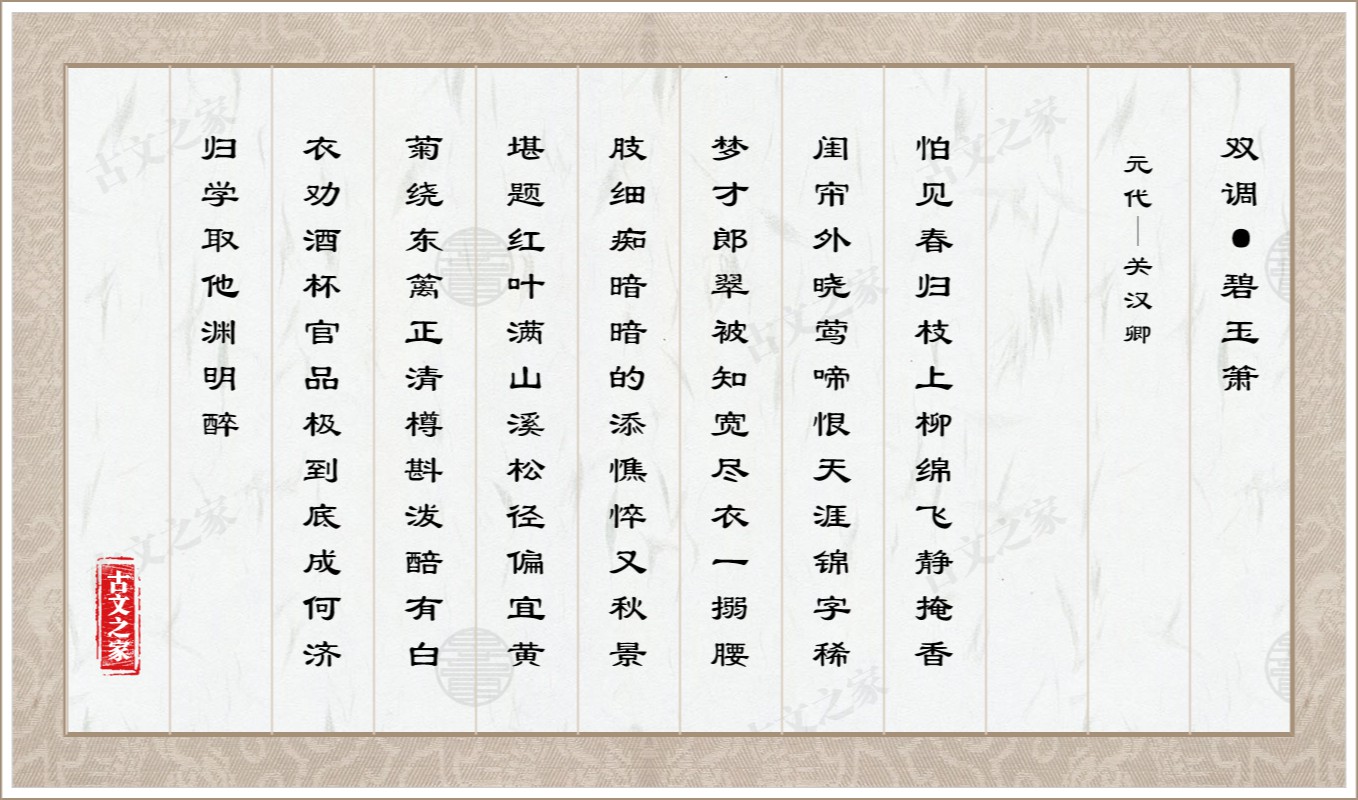 双调●碧玉箫
元代—关汉卿
怕见春归枝上柳绵飞静掩香
闺帘外晓莺啼恨天涯锦字稀
梦才郎翠被知宽尽衣一搦腰
肢细痴暗暗的添憔悴又秋景
堪题红叶满山溪松径偏宜黄
菊绕东篱正清樽斟泼醅有白
衣劝酒杯官品极到底成何济
归学取他渊明醉
古文之家
古文之家
古文之家
古文之家
古文之家
古文之家
古文之家